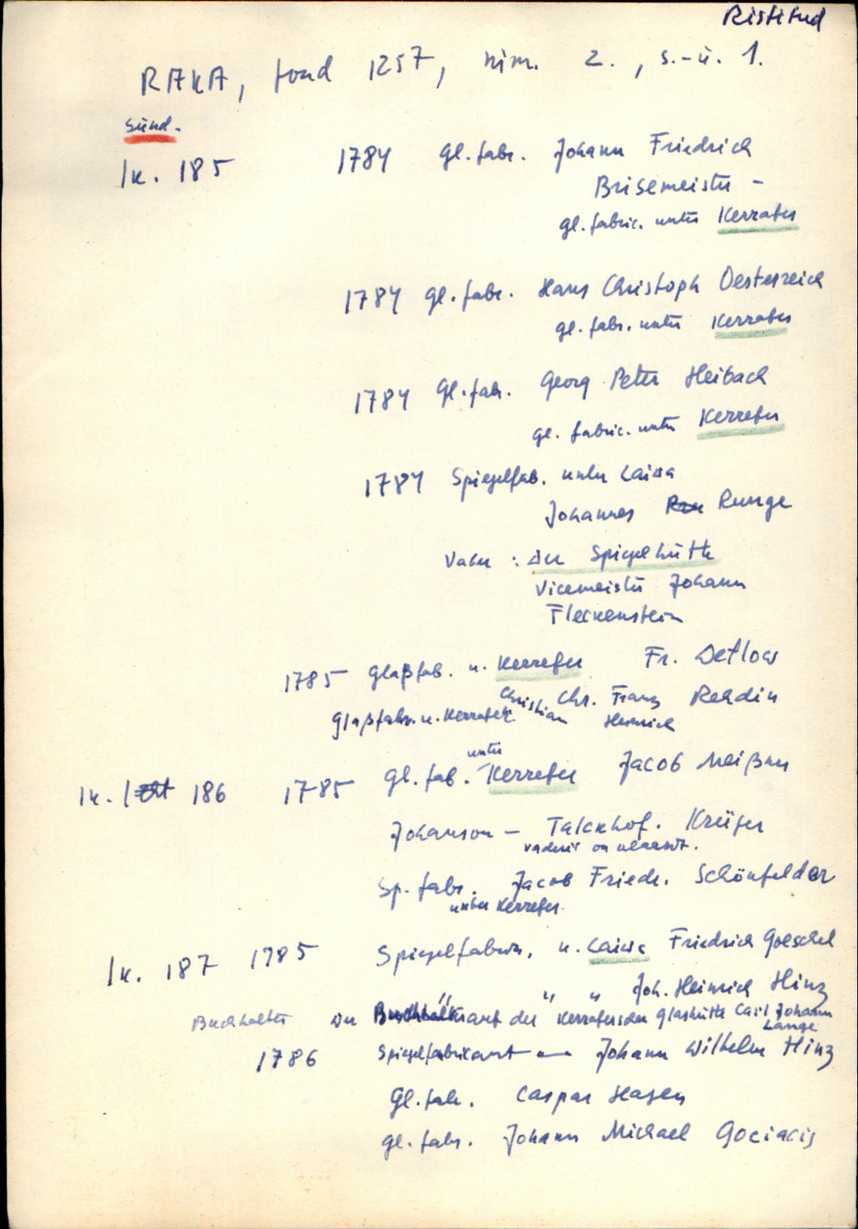 Ristitud
RAKA, fond 1257, nim. 2., s.-ü. 1.
Sünd.
lk. 185 1784 gl. fabr. Johann Friedrich
Brisemeister -
gl. fabric. unter Kerrafer
1784 gl. fabr. Hans Christoph Oesterreich
gl. fabr. unter Kerrafer
1784 gl. fabr. Georg Peter Heibach
gl. fabric. unter Kerrefer
1784 Spiegelfab. unter Laiwa
Johannes Runge
Vader : der Spiegelhütte
Vicemeister Johann
Fleckenstein
1785 Glaßfab. u. Kerrefer Fr. Detlow
Glaßfabr. u. Kerrafer Christian Chr. Franz Rehdin
Heinrich
lk. 186 1785 gl. fab. unter Kerrefer Jacob Meißner
Johanson - Talckhof. Krüger
vaderit on
Sp. fabr. Jacob Friedr. Schönfelder
unter Kerrefer.
lk. 187 1785 Spiegelfabric. u. Laiwa Friedrich Goeschel
" " " Joh. Heinrich Hinz
Buchhalter Der der Kerraferschen Glashütte Carl Johann
Lange
1786 Spiegelfabricant — Johann Wilhelm Hinz
Gl. fabr. Caspar Hagen
gl. fabr. Johann Michael Gociacis